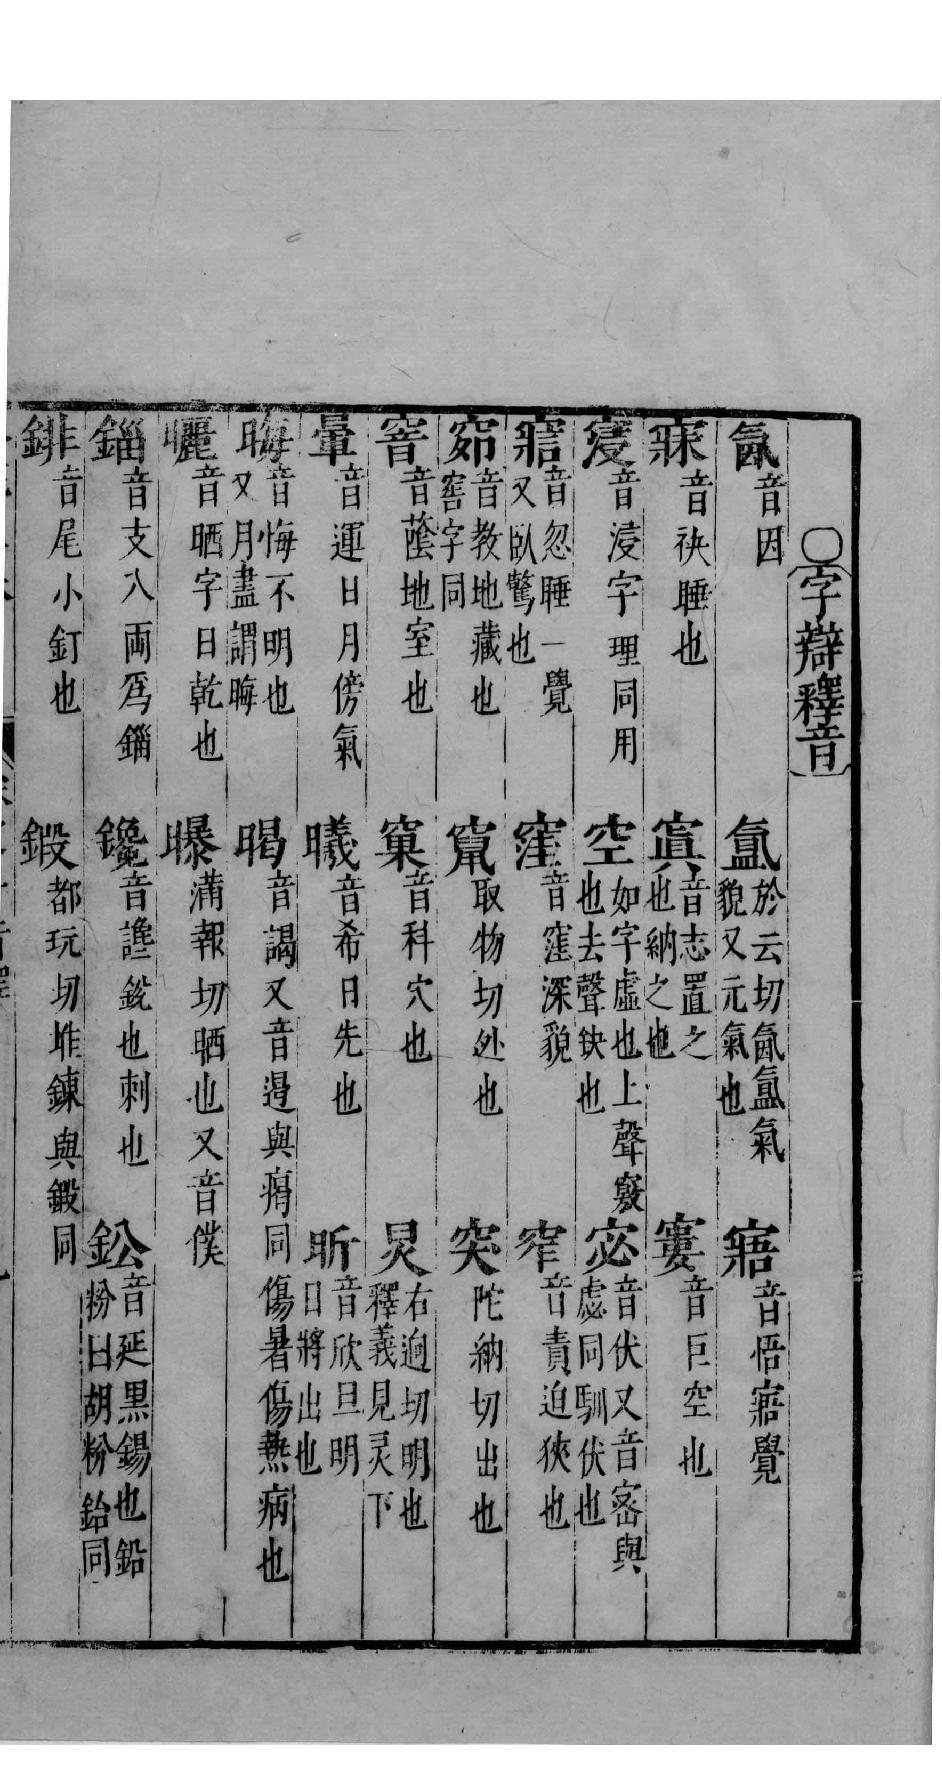 ○字辯釋音
氤音因　氳於云切氤氳氣貌又元氣也　寤音悟寤覺
寐音袂睡也　寘音志置之也納之也　窶音巨空也
寖音浸字理同用　空如字虛也上聲竅也去聲缺也　宓音伏又音密與虙同馴伏也
寣音忽睡一覺又臥驚也　窪音窪深貌　窄音責迫狹也
窌音教地藏也窖字同　竁取物切外也　突陀納切出也
窨音蔭地室也　窠音科穴也　炅右迥切明也釋義見炅下
暈音運日月傍氣　曦音希日先也　昕音欣旦明日將出也
晦音悔不明也又月盡謂晦　暍音謁又音遏與痟同傷暑傷熱病也
曬音晒字日乾也　曝蒲報切晒也又音僕
錙音支八兩爲錙　鑱音讒銳也刺也　鈆音延黑錫也鉛粉曰胡粉鈶同
鋛音尾小釘也　鍛都玩切推鍊與鍛同